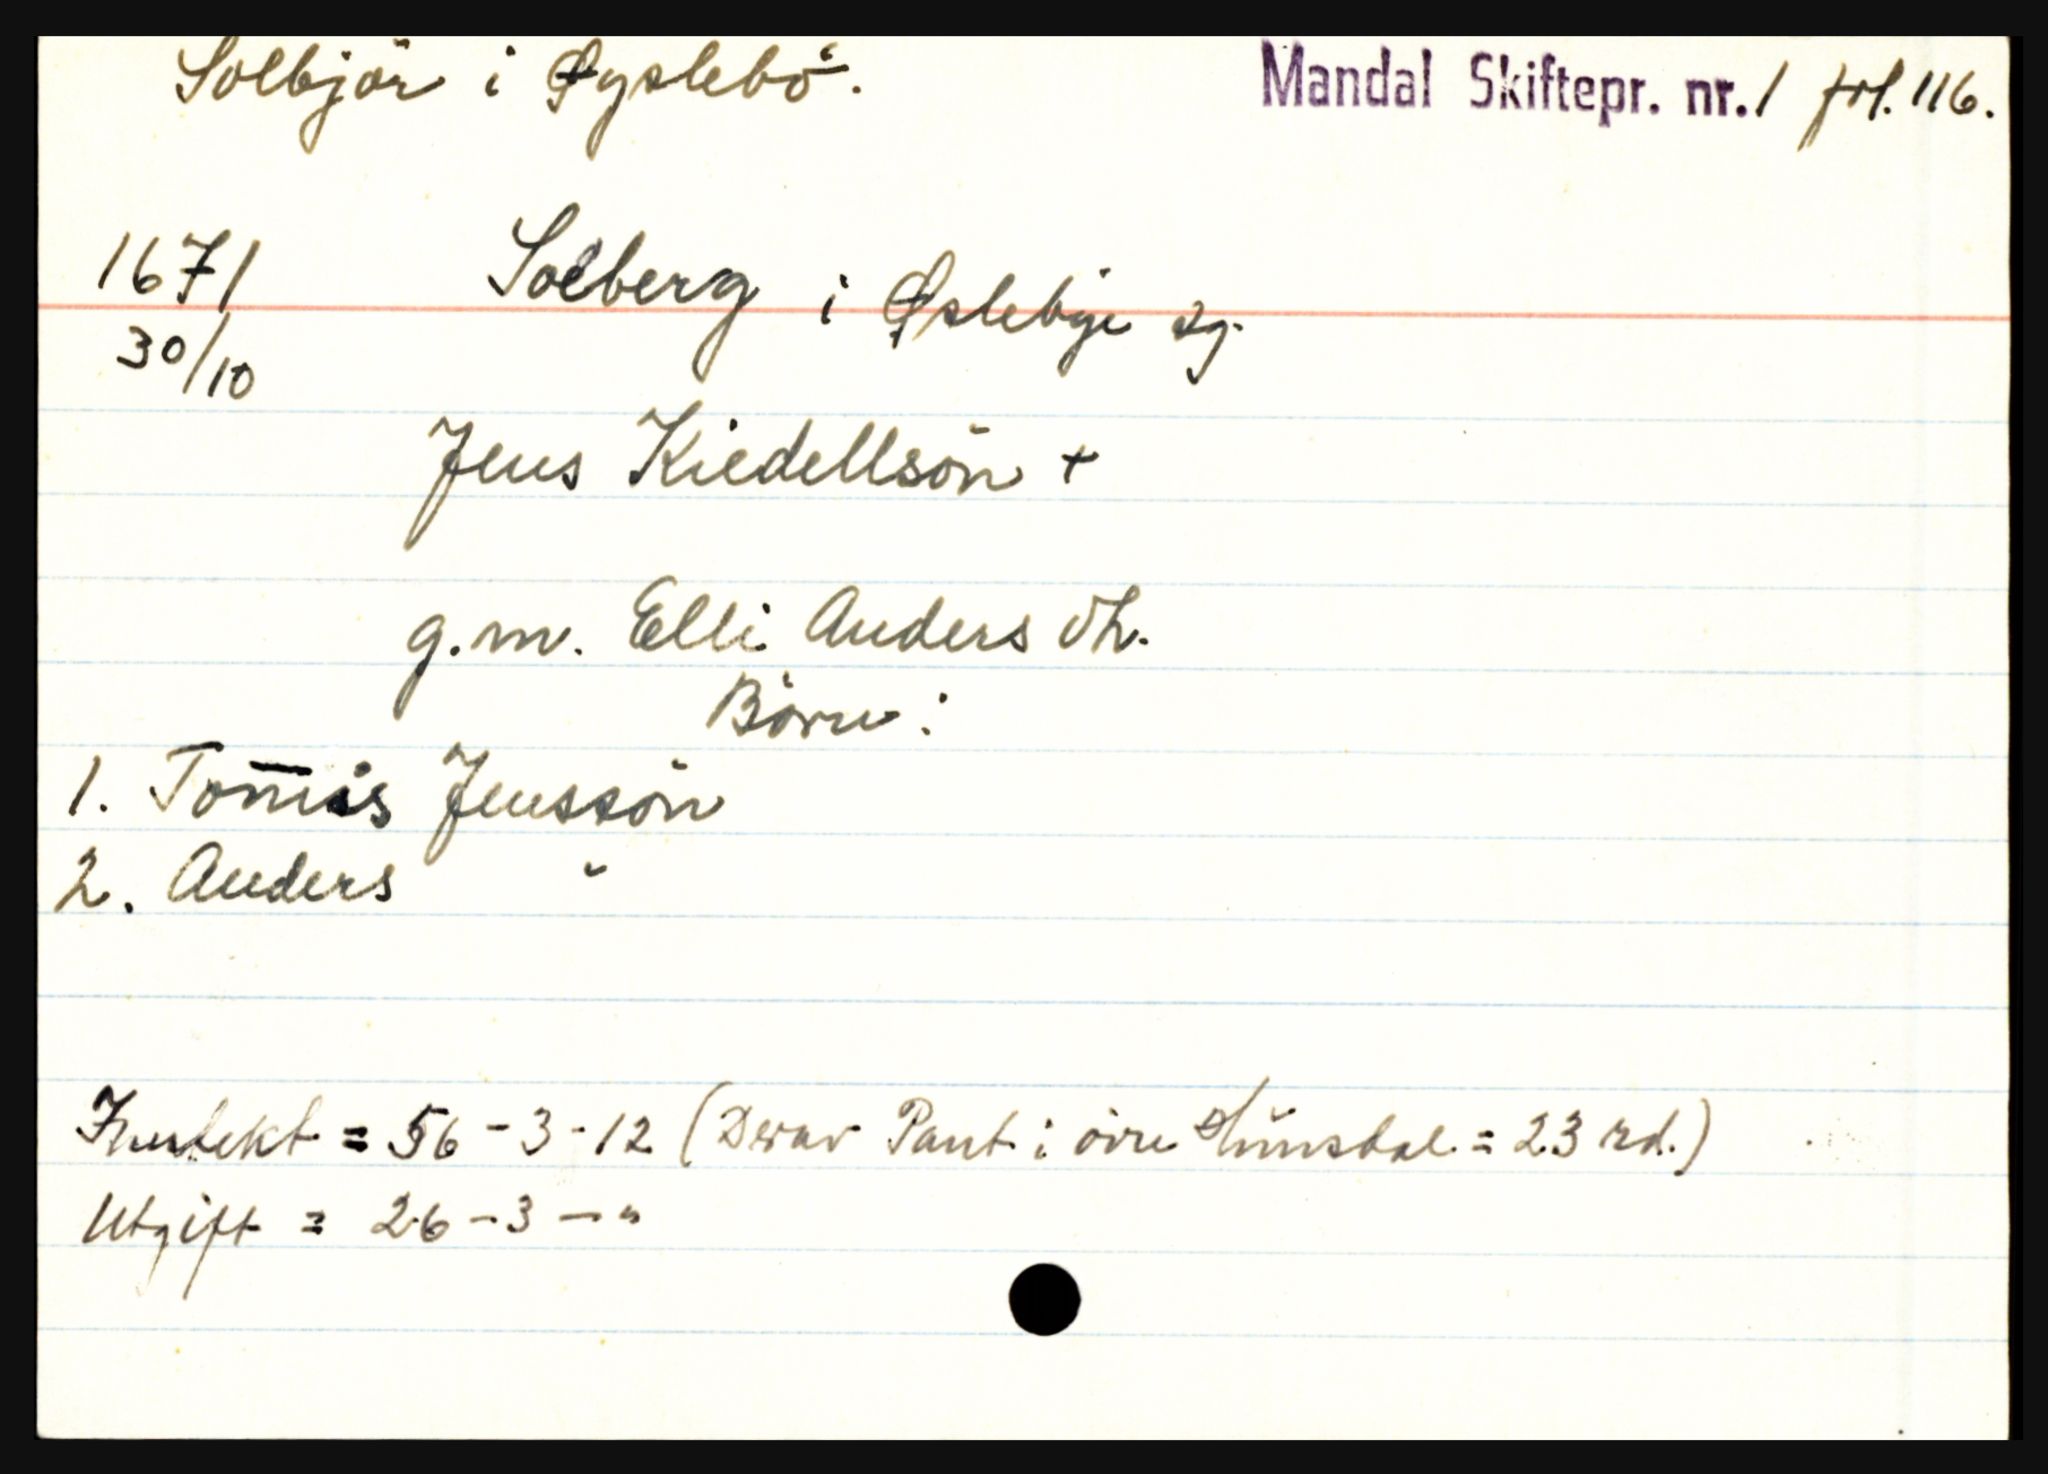 Solbjør i Øyslebö. Mandal Skiftepr. nr. 1 fol. 116.
1671 Solberg i Øslebye sg.
30/10
Jens Kiedellsön +
g.m. Elli Anders dh.
Börn:
1. Tom̅is Jenssön
2. Anders "
Inntekt = 56 - 3 - 12 (Derav Pant i övre = 23 rd.)
Utgift = 26 - 3 - "